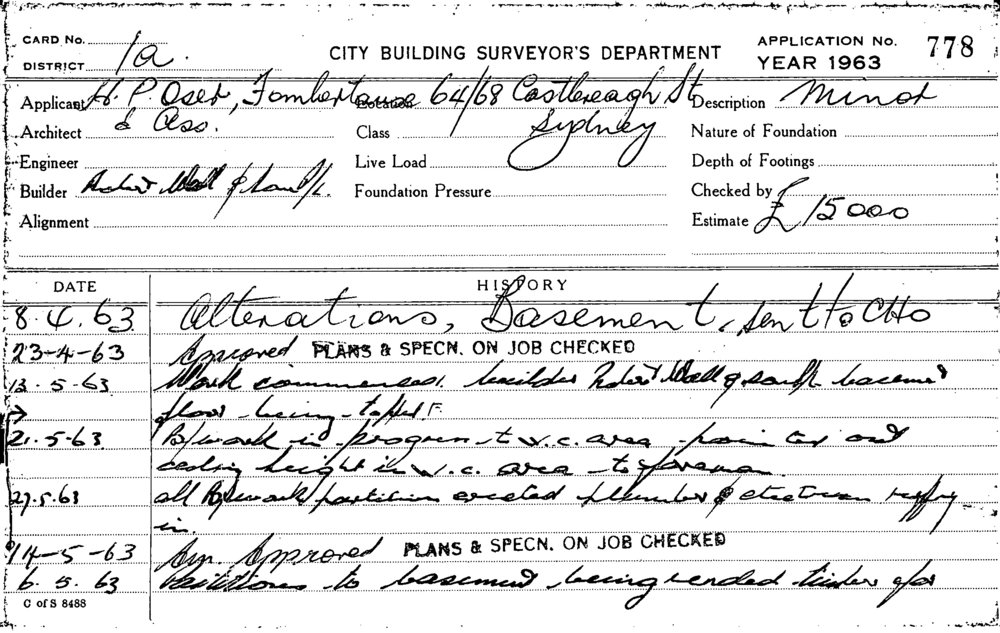 CARD No. 1a.
DISTRICT
CITY BUILDING SURVEYOR'S DEPARTMENT
APPLICATION No. 778
YEAR 1963
Applicant H. P. Oser, Fombertaux
& Ass.
Location 64/68 Castlereagh St
Sydney
Description Minor
Architect
Class
Nature of Foundation
Engineer
Live Load
Depth of Footings
Builder Robert Wall & Sons P/L.
Foundation Pressure
Checked by
Alignment
Estimate £15000
DATE HISTORY
8.4.63 Alterations, Basement, sent to CHO
23-4-63 Approved PLANS & SPECN. ON JOB CHECKED
13.5.63 Work commenced, builder Robert Wall & Sons P/L basement
floor being
21.5.63 B/work in progress to w.c. area pointed out
ceiling height in w.c. area to foreman
29.5.63 all B/work partition erected plumber & electrician
in.
14-5-63 Am. Approved PLANS & SPECN. ON JOB CHECKED
6.5.63 to basement being rended timber
C of S 8488